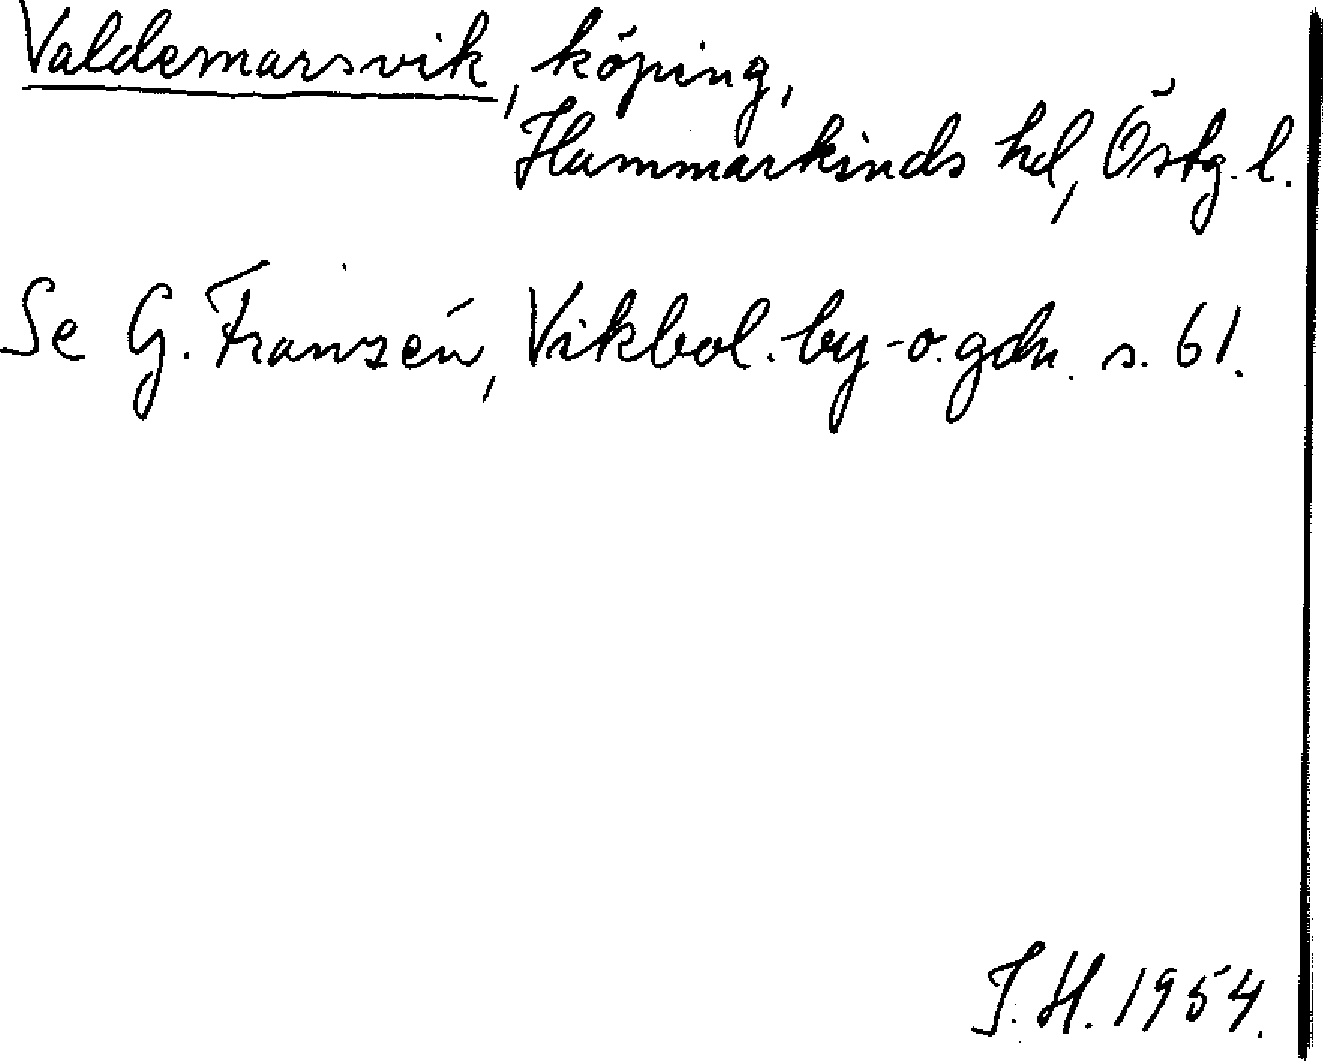 Valdemarsvik, köping,
Hammarkinds hd, Östg. l.
Se G. Franzén, Vikbol. by- o. gdn. s. 61.
J. H. 1954.